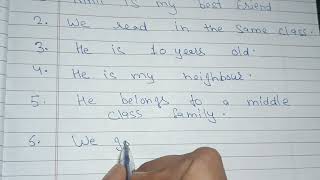 is my best Friend
2. We read in the same class.
3. He is 10 years old.
4. He is my neighbour.
5. He belongs to a middle
class family.
6. We g